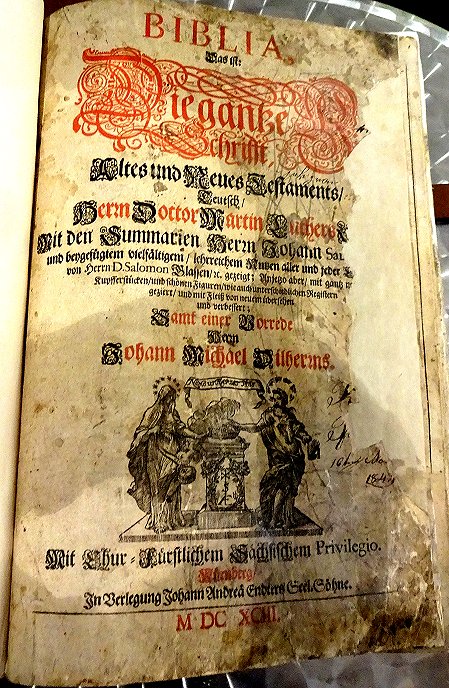 BIBLIA,
Das ist:
Die gantze
Schrifft,
Altes und Neues Testaments/
Teutsch/
Herrn Doctor Martin Luthers
Mit den Summarien Herrn Johann
und beygefügtem vielfältigem/ lehrreichem Nutzen aller und jeder
von Herrn D. Salomon Glassen/ ꝛc. gezeigt; Anjetzo aber/ mit gantz
Kupfferstücken/ und schönen Figuren/ wie auch unterschiedlichen Registern
gezieret/ und mit Fleiß von neuem übersehen
und verbessert;
Samt einer Vorrede
Herrn
Johann Michael Dilherrns.
Mit Chur-Fürstlichem Sächsischem Privilegio.
Nürnberg
In Verlegung Johann Andreä Endters Seel. Söhne.
M DC XCIII.